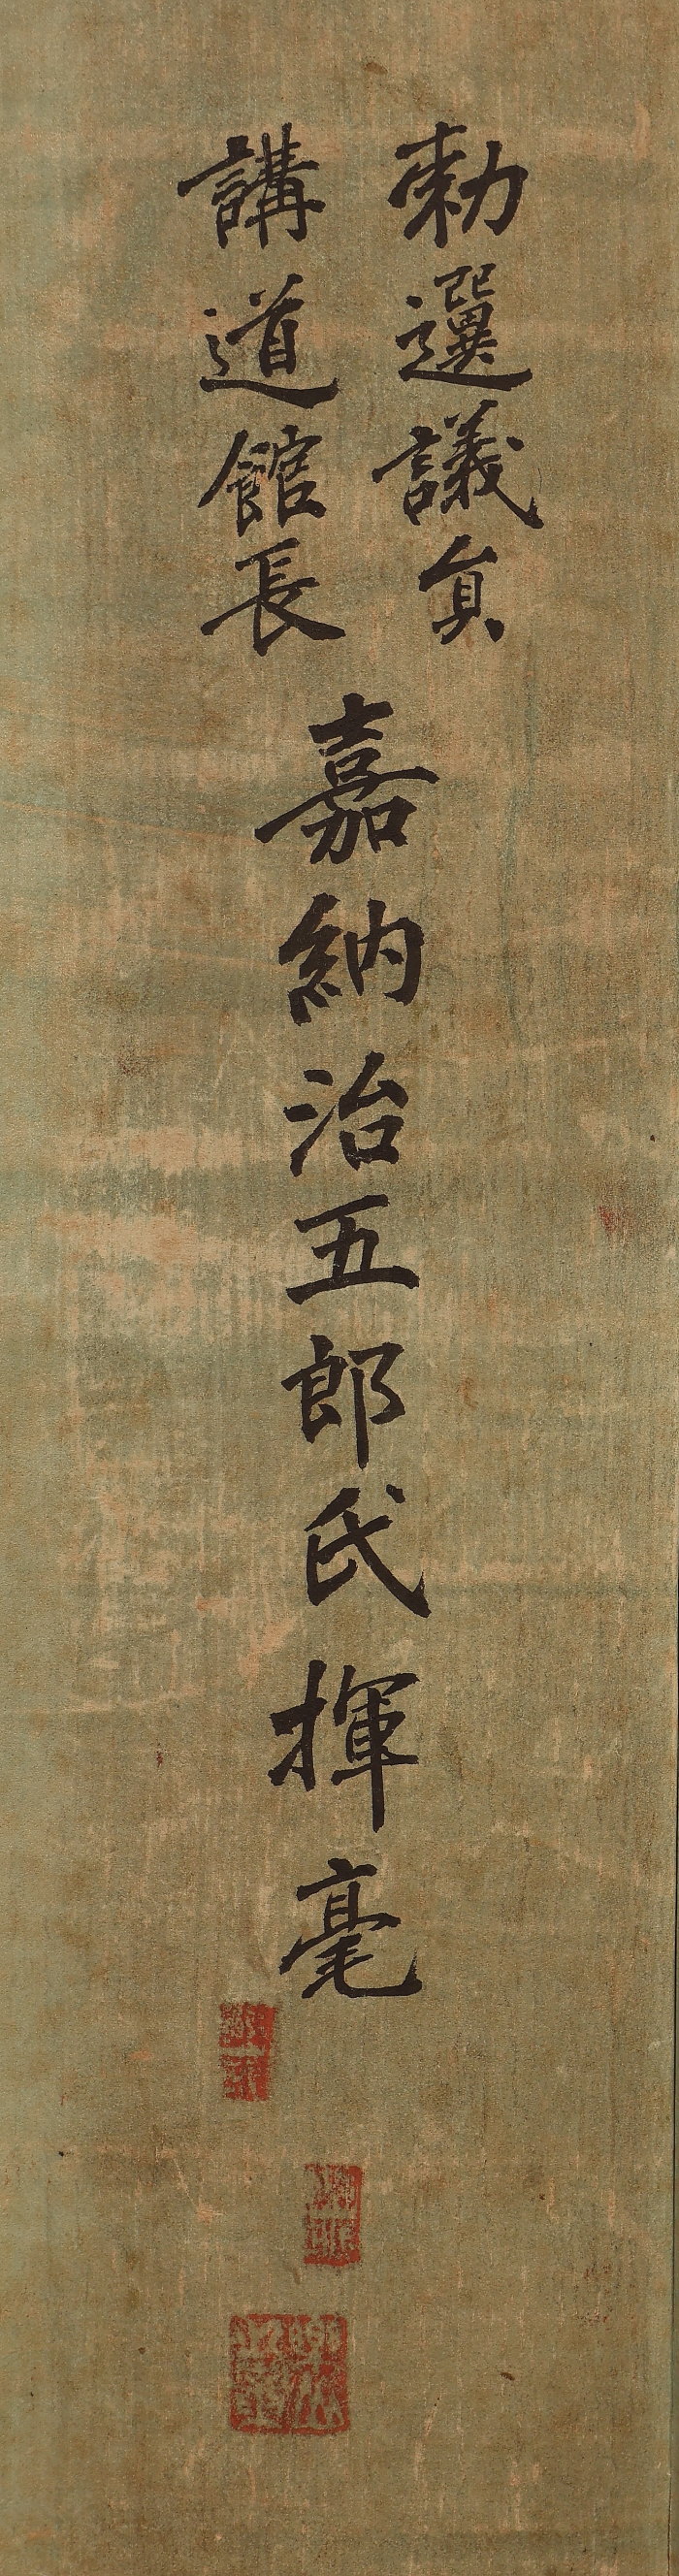 勅選議員
講道館長
嘉納治五郎氏揮毫